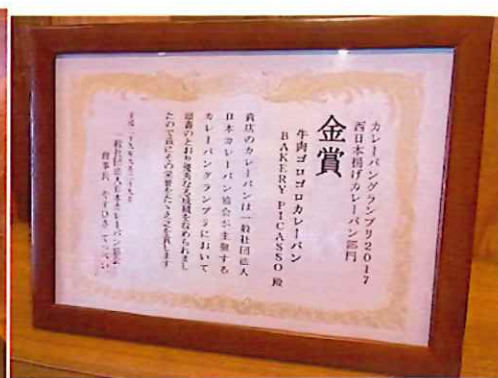 カレーパングランプリ2017
西日本揚げカレーパン部門
金賞
牛肉ゴロゴロカレーパン
BAKERY PICASSO 殿
貴店のカレーパンは一般社団法人
日本カレーパン協会が主催する
カレーパングランプリにおいて
頭書のとおり優秀なる成績を収められまし
たので茲にその栄誉をたたえ之を賞します
一般社団法人日本カレーパン協会
理事長 やすひさてっぺい